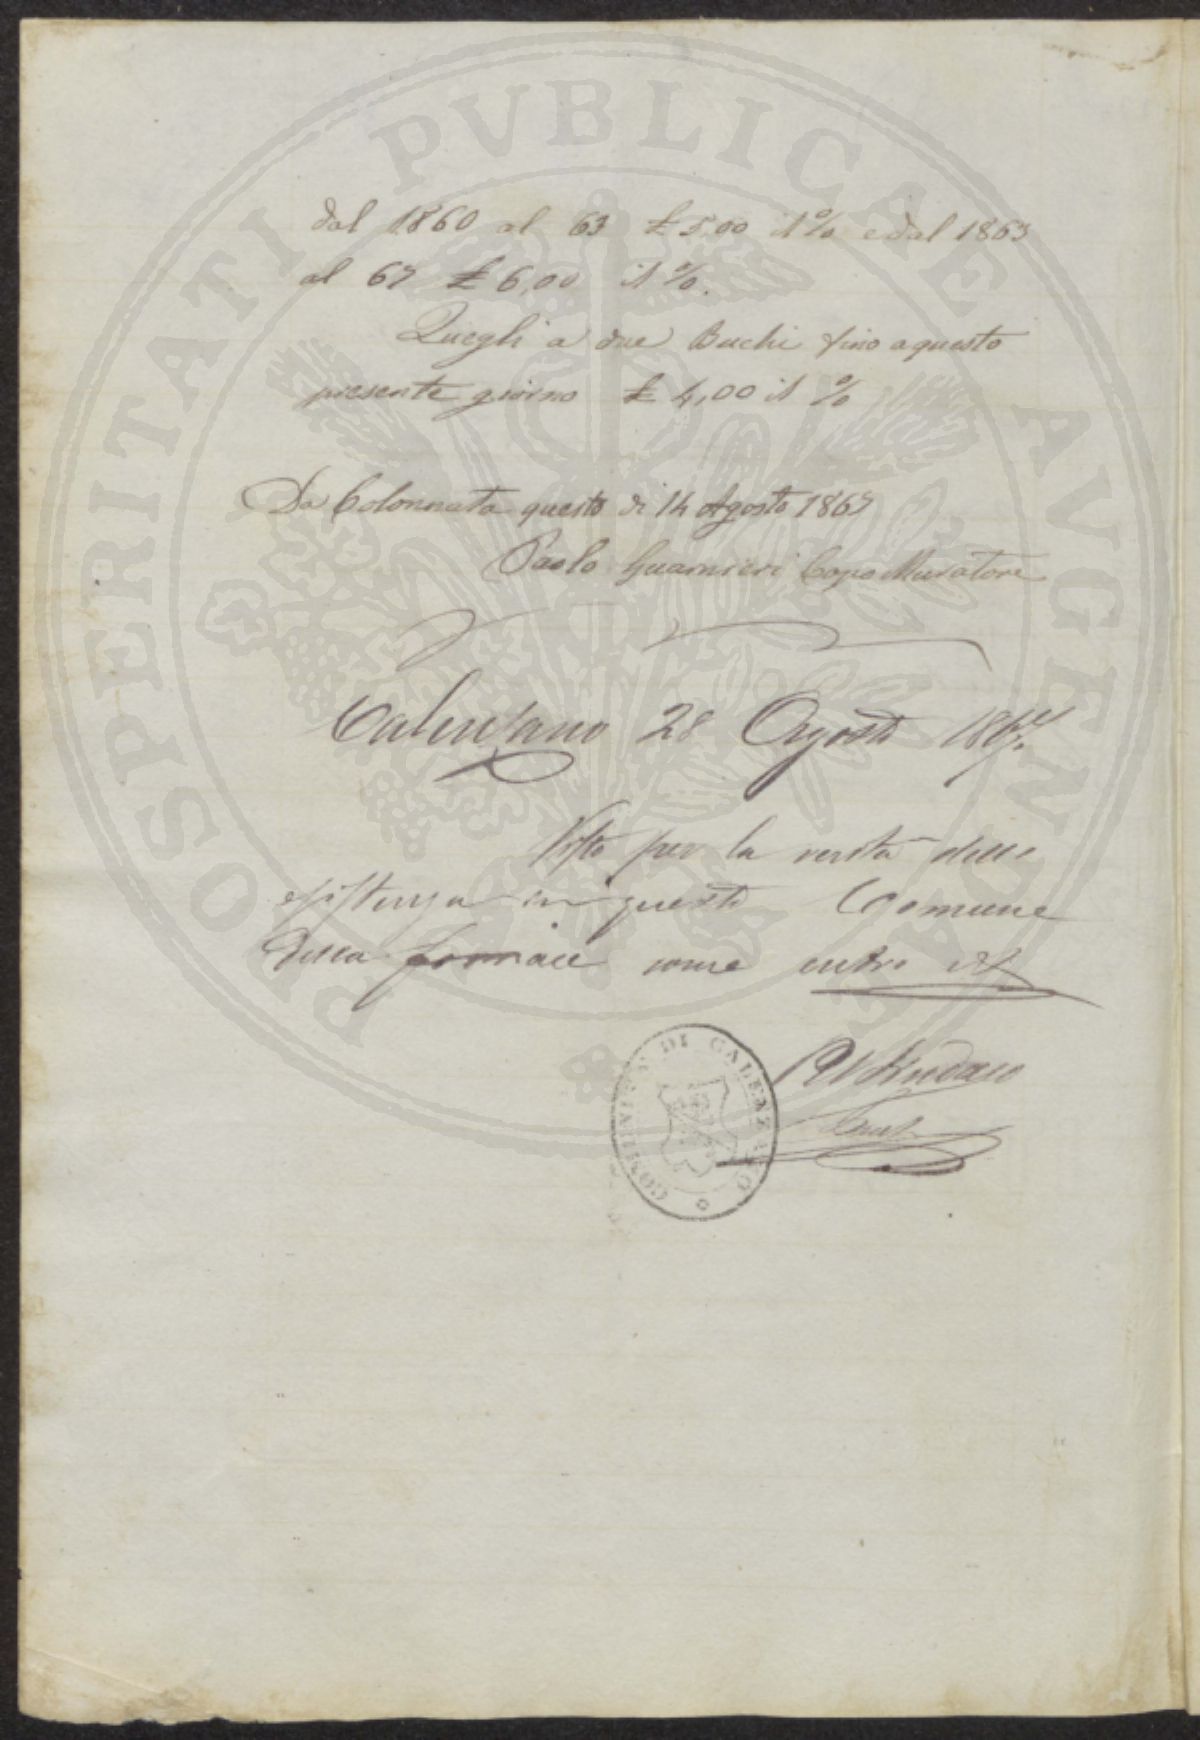 dal 1860 al 63 £ 5,00 il % e dal 1863
al 67 £ 6,00 il %.
Quegli a due Buchi fino a questo
presente giorno £ 4,00 il %
Da Colonnata questo di 14 Agosto 1867
Paolo Guarnieri Capo Muratore
Calenzano 28 Agosto 1867.
Visto per la verità della
esistenza in questo Comune
della fornace come entro
Pel Sindaco
COMUNITÀ DI CALENZANO
PROSPERITATI PVBLICAE AVGENDAE